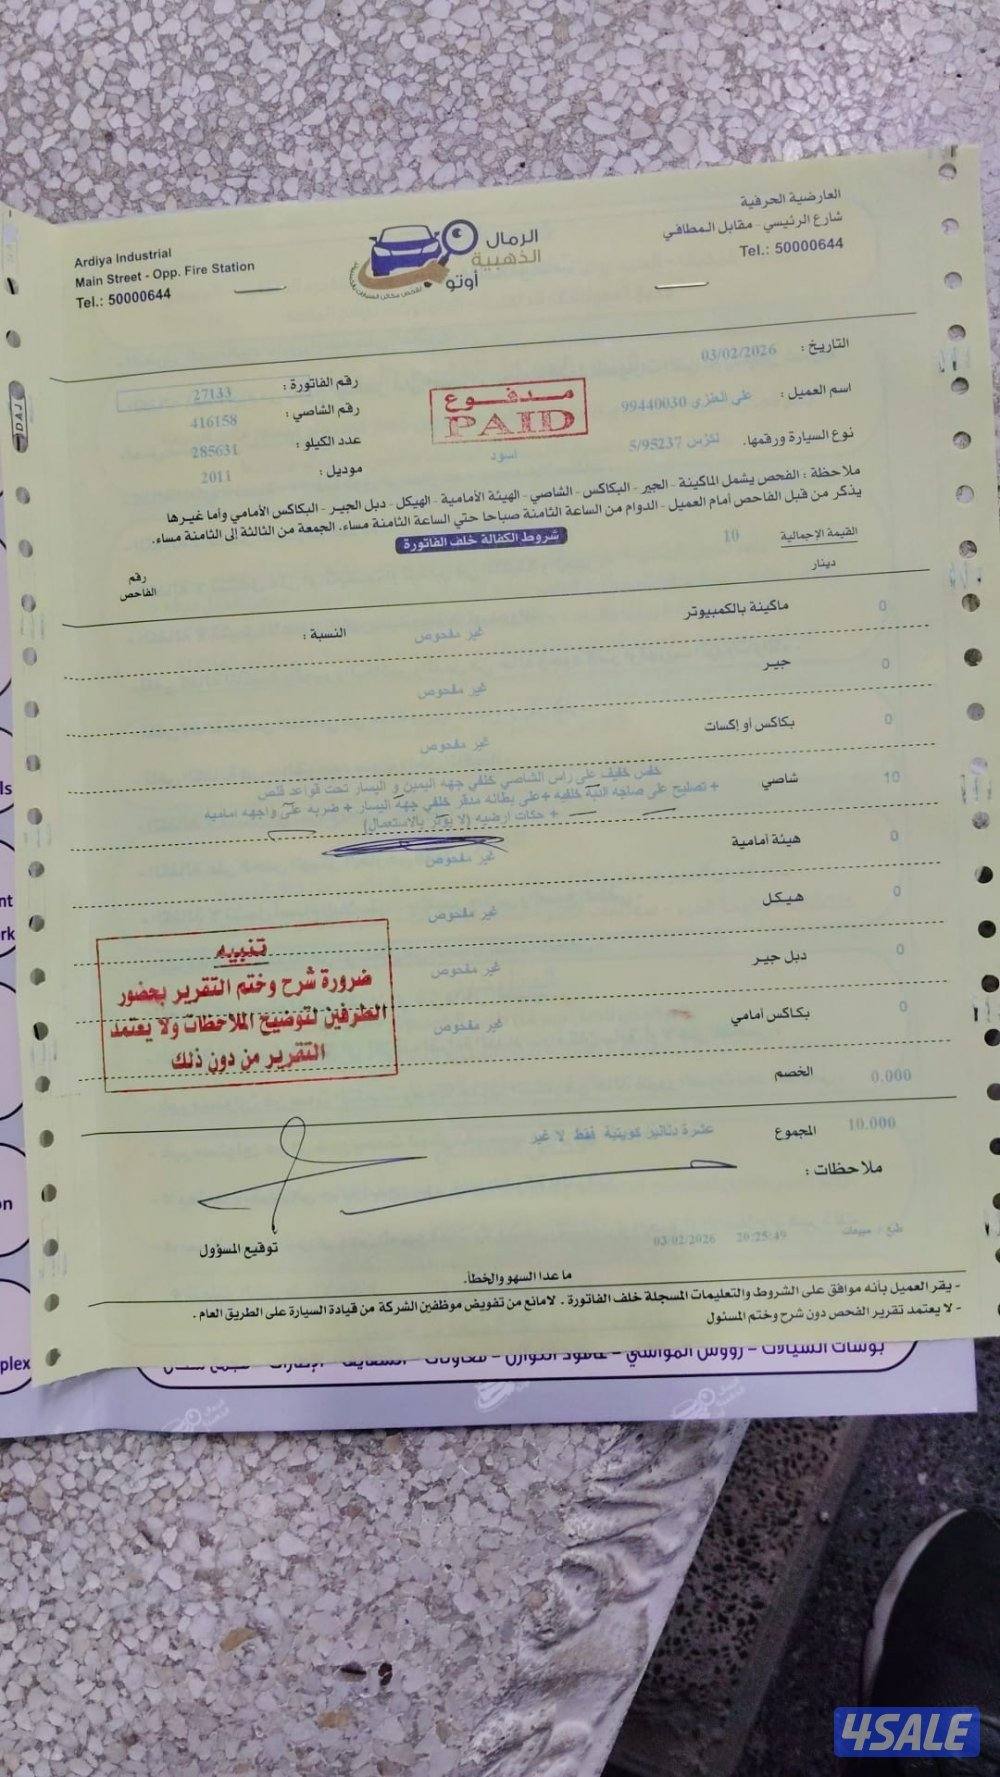 العارضية الحرفية
شارع الرئيسي - مقابل المطافي
Tel.: 50000644
الرمال
الذهبية
أوتو
Ardiya Industrial
Main Street - Opp. Fire Station
Tel.: 50000644
التاريخ : 03/02/2026
رقم الفاتورة : 27133
اسم العميل : علي العنزي 99440030
مدفوع
PAID
رقم الشاصي : 416158
نوع السيارة ورقمها. لكزس 5/95237
اسود
عدد الكيلو : 285631
موديل : 2011
ملاحظة : الفحص يشمل الماكينة - الجير - البكاكس - الشاصي - الهيئة الأمامية - الهيكل - دبل الجير - البكاكس الأمامي وأما غيرها
يذكر من قبل الفاحص أمام العميل - الدوام من الساعة الثامنة صباحا حتي الساعة الثامنة مساء. الجمعة من الثالثة إلى الثامنة مساء.
شروط الكفالة خلف الفاتورة
القيمة الإجمالية 10
دينار
رقم
الفاحص
0 ماكينة بالكمبيوتر غير مفحوص النسبة :
0 جير غير مفحوص
0 بكاكس أو إكسات غير مفحوص
10 شاصي خفس خفيف على راس الشاصي خلفي جهه اليمين و اليسار تحت قواعد فلص
+ تصليح على صاجه النبة خلفيه + على بطانه مدقر خلفي جهة اليسار + ضربه على واجهه اماميه
+ حكات ارضيه (لا يؤثر بالاستعمال)
0 هيئة أمامية غير مفحوص
0 هيكل غير مفحوص
0 دبل جير غير مفحوص
0 بكاكس أمامي غير مفحوص
تنبيه
ضرورة شرح وختم التقرير بحضور
الطرفين لتوضيح الملاحظات ولا يعتمد
التقرير من دون ذلك
0.000 الخصم
10.000 المجموع عشرة دنانير كويتية فقط لا غير
ملاحظات :
توقيع المسؤول
طبع / مبيعات 20:25:49 03/02/2026
ما عدا السهو والخطأ.
- يقر العميل بأنه موافق على الشروط والتعليمات المسجلة خلف الفاتورة . لامانع من تفويض موظفين الشركة من قيادة السيارة على الطريق العام .
- لا يعتمد تقرير الفحص دون شرح وختم المسئول
DAJ
4SALE